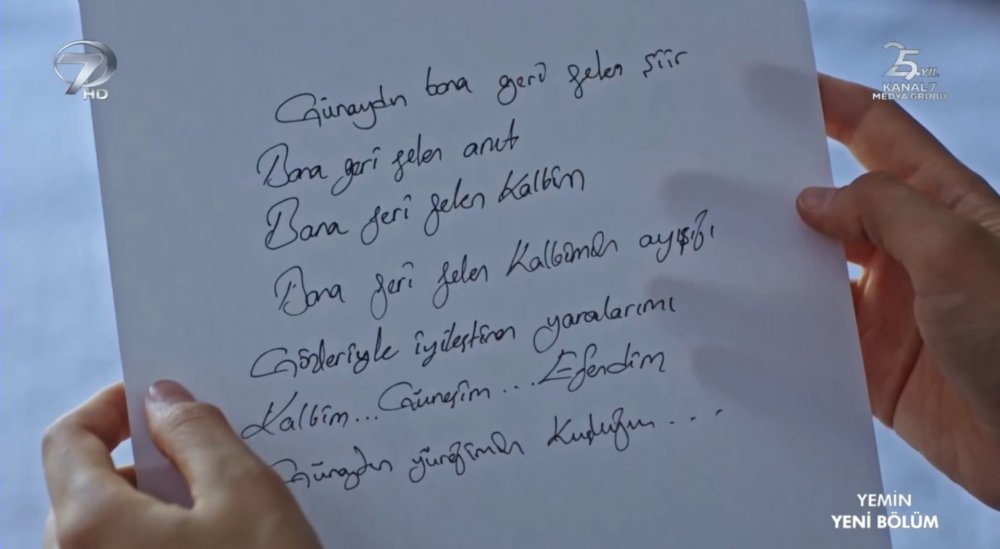 7 HD
25. YIL
KANAL 7
MEDYA GRUBU
Günaydın bana geri gelen şiir
Bana geri gelen anut
Bana geri gelen Kalbim
Bana geri gelen Kalbimin ayışığı
Gözleriyle iyileştiren yaralarımı
Kalbim... Güneşim... Efendim
Günaydın yüreğimin Kuşluğun...
YEMİN
YENİ BÖLÜM